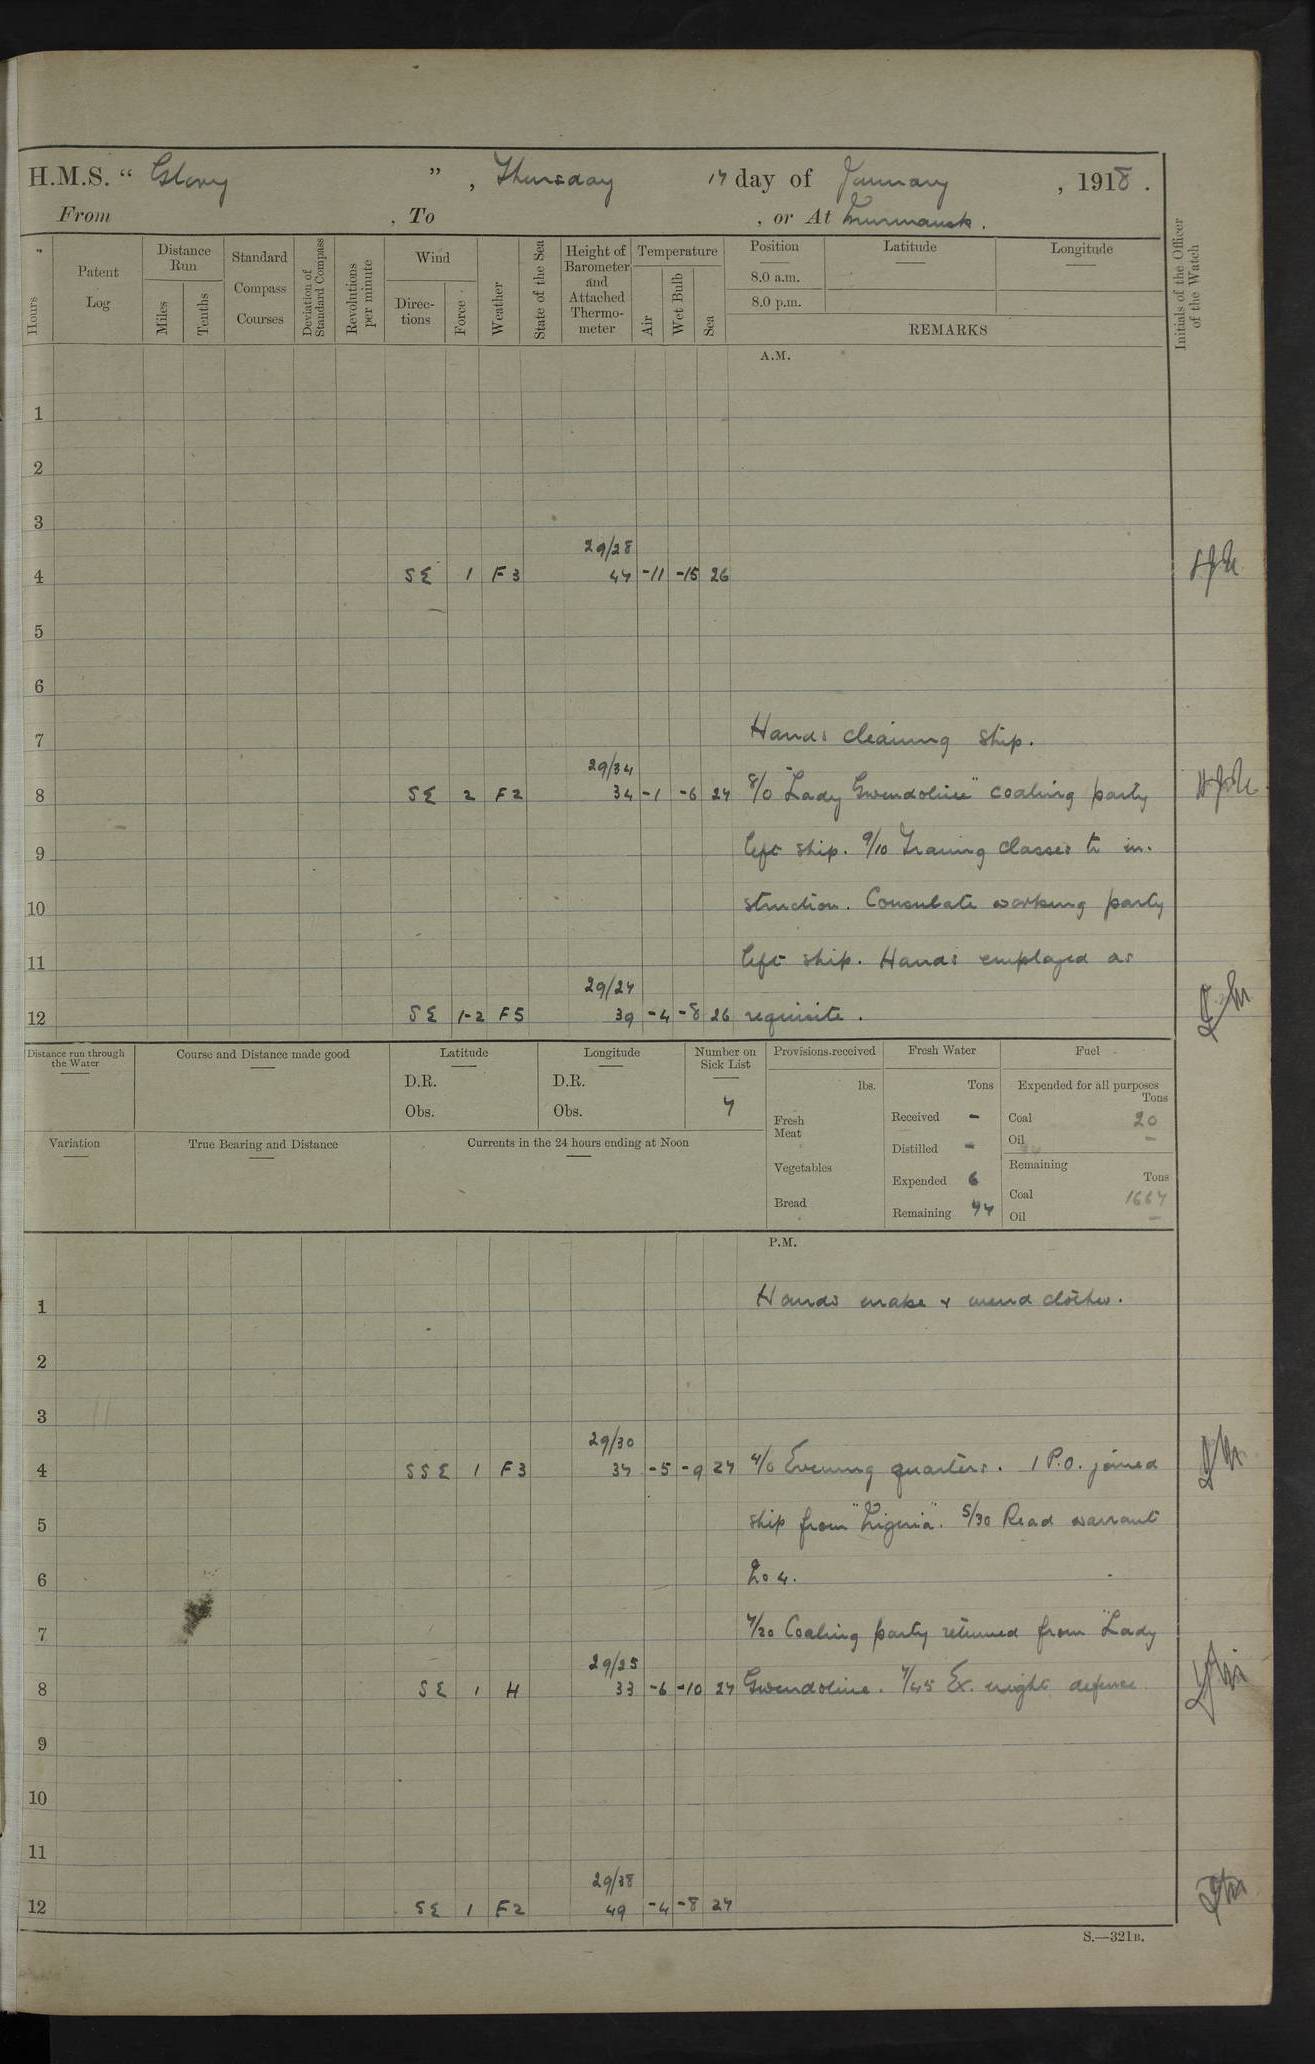 H.M.S. “ Glory ” , Thursday 17 day of January , 1918 .
From , To , or At Murmansk .
Hours
Patent Log
Distance Run
Miles
Tenths
Standard Compass Courses
Deviation of Standard Compass
Revolutions per minute
Wind
Directions
Force
Weather
State of the Sea
Height of Barometer and Attached Thermometer
Temperature
Air
Wet Bulb
Sea
Position
8.0 a.m.
8.0 p.m.
Latitude
Longitude
REMARKS
Initials of the Officer of the Watch
A.M.
1
2
3
29/28
4 SE 1 F3 47 -11 -15 26
5
6
7 Hands cleaning ship.
29/34
8 SE 2 F2 34 -1 -6 27 8/0 "Lady Gwendoline" coaling party
9 left ship. 9/10 Training classes to in-
10 struction. Consulate working party
11 left ship. Hands employed as
29/27
12 SE 1-2 F5 39 -4 -8 26 requisite .
Distance run through the Water
Course and Distance made good
Latitude
D.R.
Obs.
Longitude
D.R.
Obs.
Number on Sick List
7
Provisions received
lbs.
Fresh Meat
Vegetables
Bread
Fresh Water
Tons
Received -
Distilled -
Expended 6
Remaining 77
Fuel
Expended for all purposes
Tons
Coal 20
Oil -
Remaining
Tons
Coal 1667
Oil -
Variation
True Bearing and Distance
Currents in the 24 hours ending at Noon
P.M.
1 Hands make & mend clothes.
2
3
29/30
4 SSE 1 F3 37 -5 -9 27 4/0 Evening quarters. 1 P.O. joined
5 ship from "Nigeria". 5/30 Read warrant
6 No 4.
7 7/20 Coaling party returned from "Lady
29/25
8 SE 1 H 33 -6 -10 27 Gwendoline. 7/45 Ex. night defence
9
10
11
29/38
12 SE 1 F2 49 -4 -8 27
S.—321B.